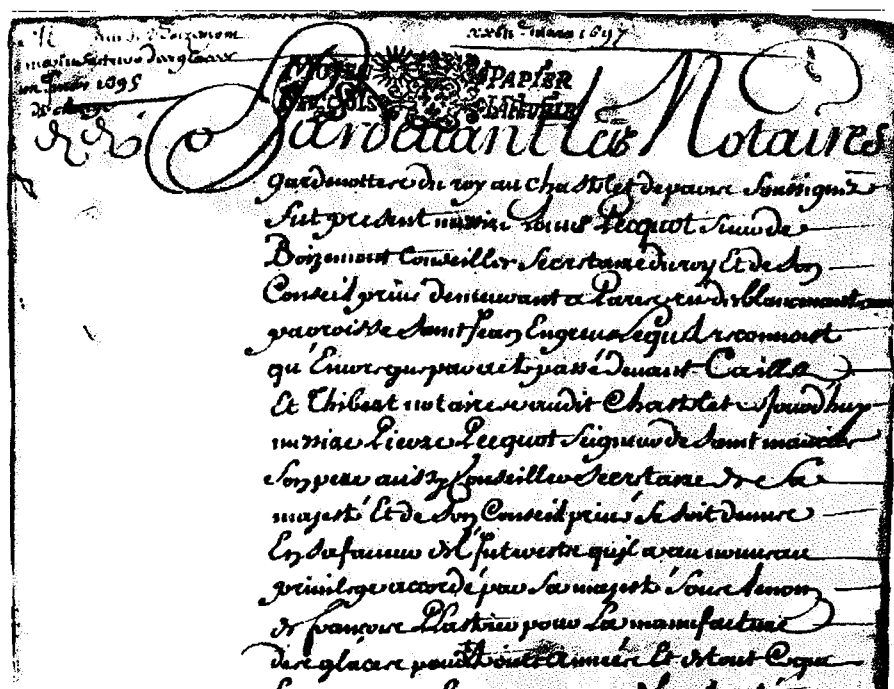 xxbii mars 1697
manufacture de glaces
mars 1695
MOYEN PAPIER
DEUX SOLS LA FEUILLE
Pardevant les Notaires
gardenottes du roy au Chastelet de paris soussignez
fut present messire Louis Pecquot sieur de
Boizemont Conseiller Secretaire du roy Et de son
Conseil privé demeurant a Paris rue des blancmanteaux
parroisse saint Jean En greve Lequel reconnoist
qu'Encore que par acte passé devant Caillet
Et Thibert notaires audit Chastelet cejourd'huy
messire Pierre Pecquot Seigneur de saint maurice
son pere aussy Conseiller Secretaire de Sa
majesté Et de son Conseil privé se soit demis
En sa faveur de l'Interest qu'il a au nouveau
privilege accordé par sa majesté sous le nom
de françois Plastrier pour La manufacture
des glaces Et de tout Ce que